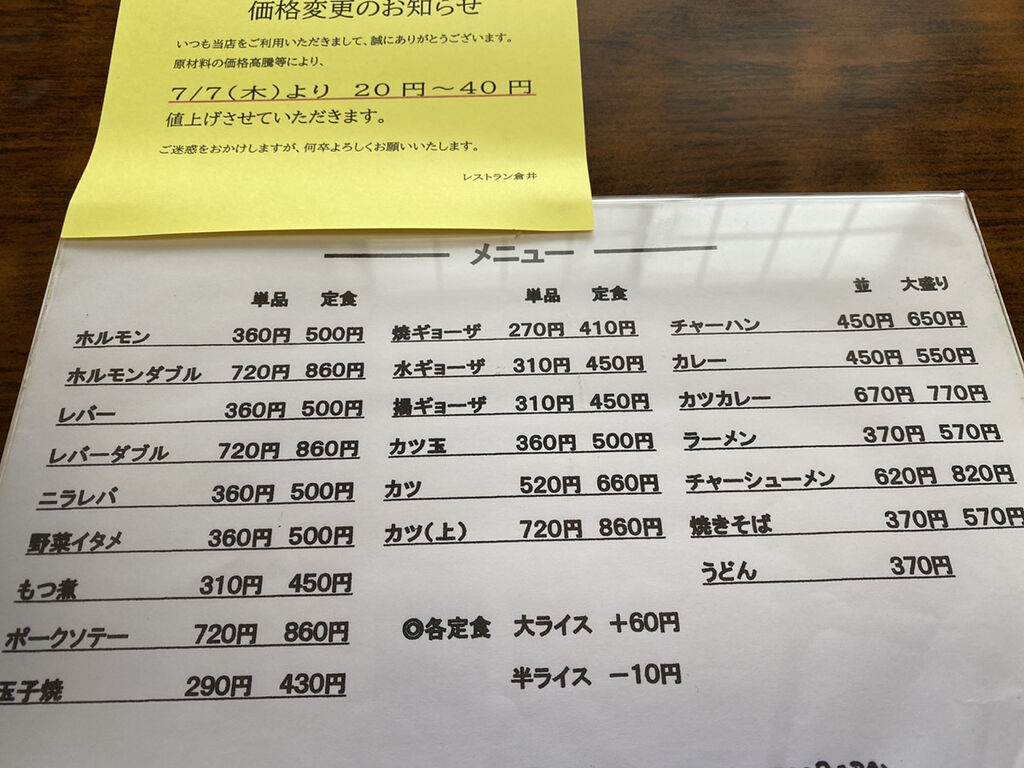 価格変更のお知らせ
いつも当店をご利用いただきまして、誠にありがとうございます。
原材料の価格高騰等により、
7/7(木)より 20円～40円
値上げさせていただきます。
ご迷惑をおかけしますが、何卒よろしくお願いいたします。
レストラン倉井
メニュー
単品 定食
ホルモン 360円 500円
ホルモンダブル 720円 860円
レバー 360円 500円
レバーダブル 720円 860円
ニラレバ 360円 500円
野菜イタメ 360円 500円
もつ煮 310円 450円
ポークソテー 720円 860円
玉子焼 290円 430円
単品 定食
焼ギョーザ 270円 410円
水ギョーザ 310円 450円
揚ギョーザ 310円 450円
カツ玉 360円 500円
カツ 520円 660円
カツ(上) 720円 860円
◎各定食 大ライス +60円
半ライス −10円
並 大盛り
チャーハン 450円 650円
カレー 450円 550円
カツカレー 670円 770円
ラーメン 370円 570円
チャーシューメン 620円 820円
焼きそば 370円 570円
うどん 370円